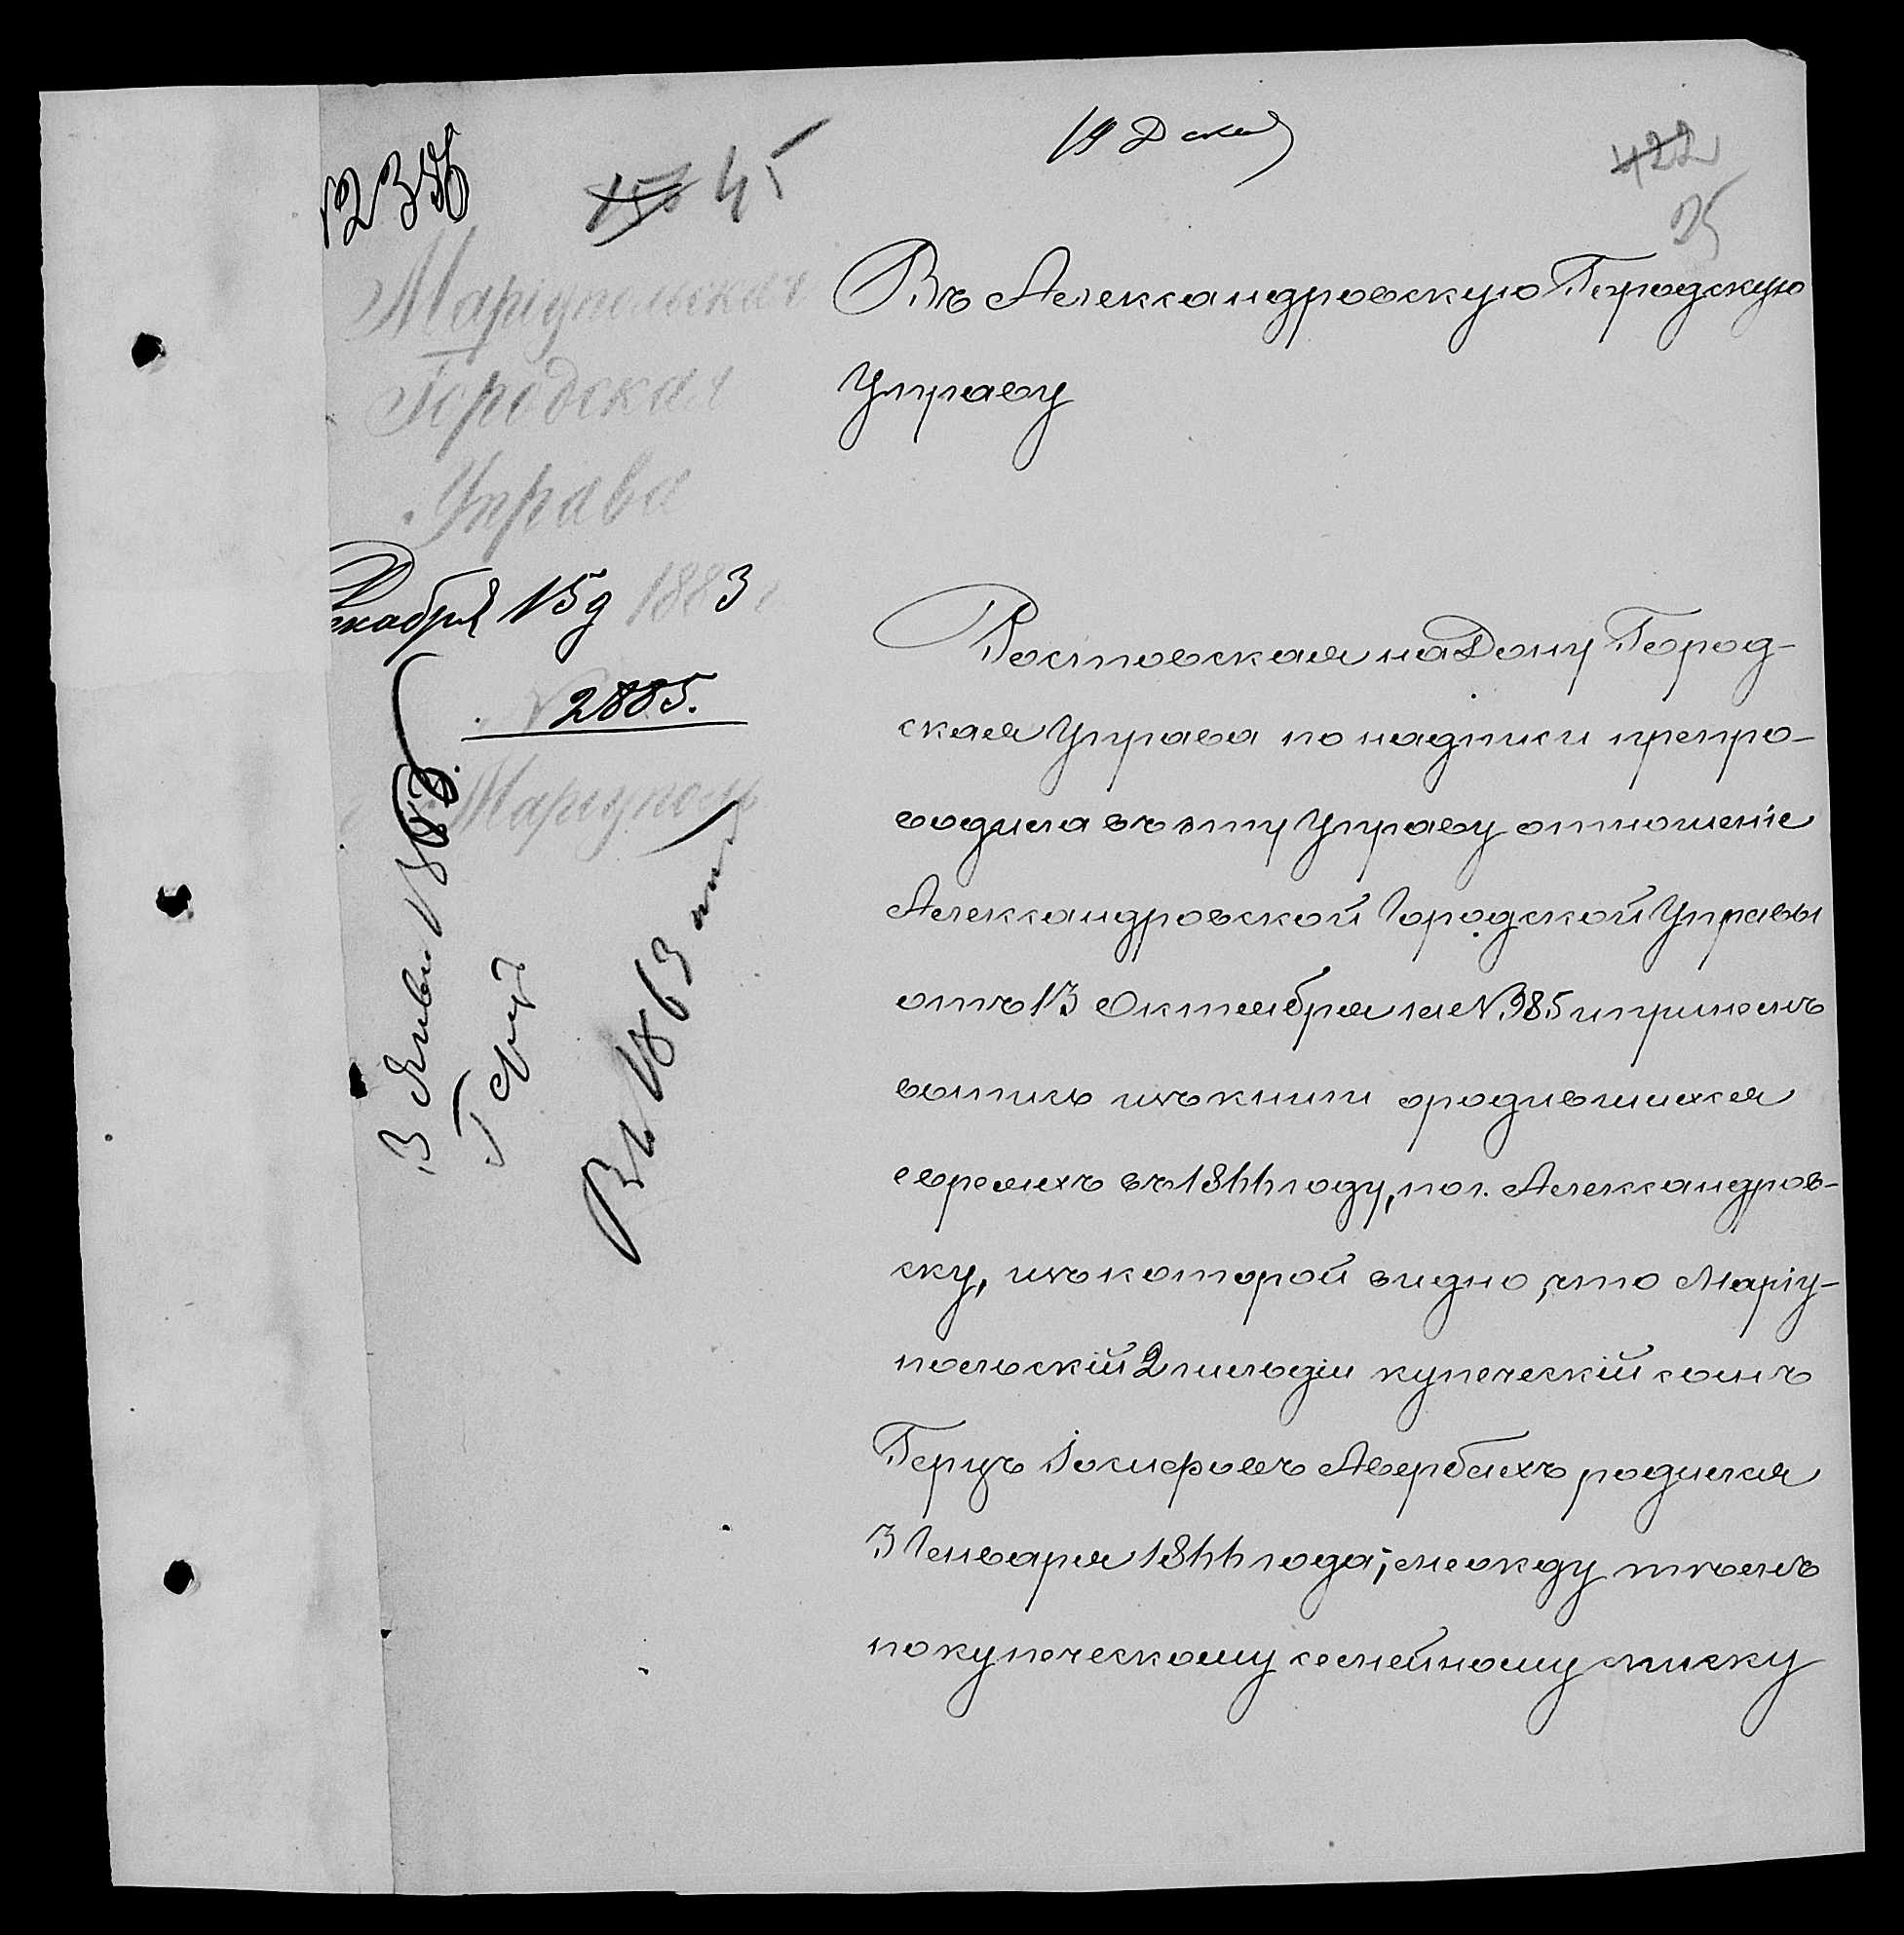 1236
156 45
19 Дека
422
25
Маріупольская
Городская
Управа
Декабря 15 д 1883 г
№ 2885.
г. Маріуполь
Въ Александровскую Городскую
Управу
Ростовская на Дону Город-
ская Управа по надписи препро-
водила въ эту Управу отношеніе
Александровской Городской Управы
отъ 13 Октября за № 985 и при немъ
выпись изъ книги о родившихся
евреяхъ въ 1844 году, по г. Александров-
ску, изъ которой видно, что Маріу-
польскій 2 гильдіи купеческій сынъ
Герцъ Іосифовъ Авербахъ родился
3 Генваря 1844 года; между тѣмъ
по купеческому семейному списку
3 Янв. 1883.
Герц
Въ 1863